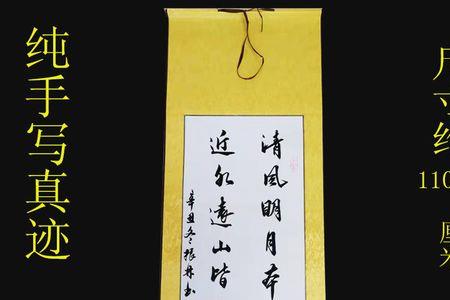 纯手写真迹
清风明月本
近水遠山皆
辛丑冬振林书
尺寸约
110
厘米